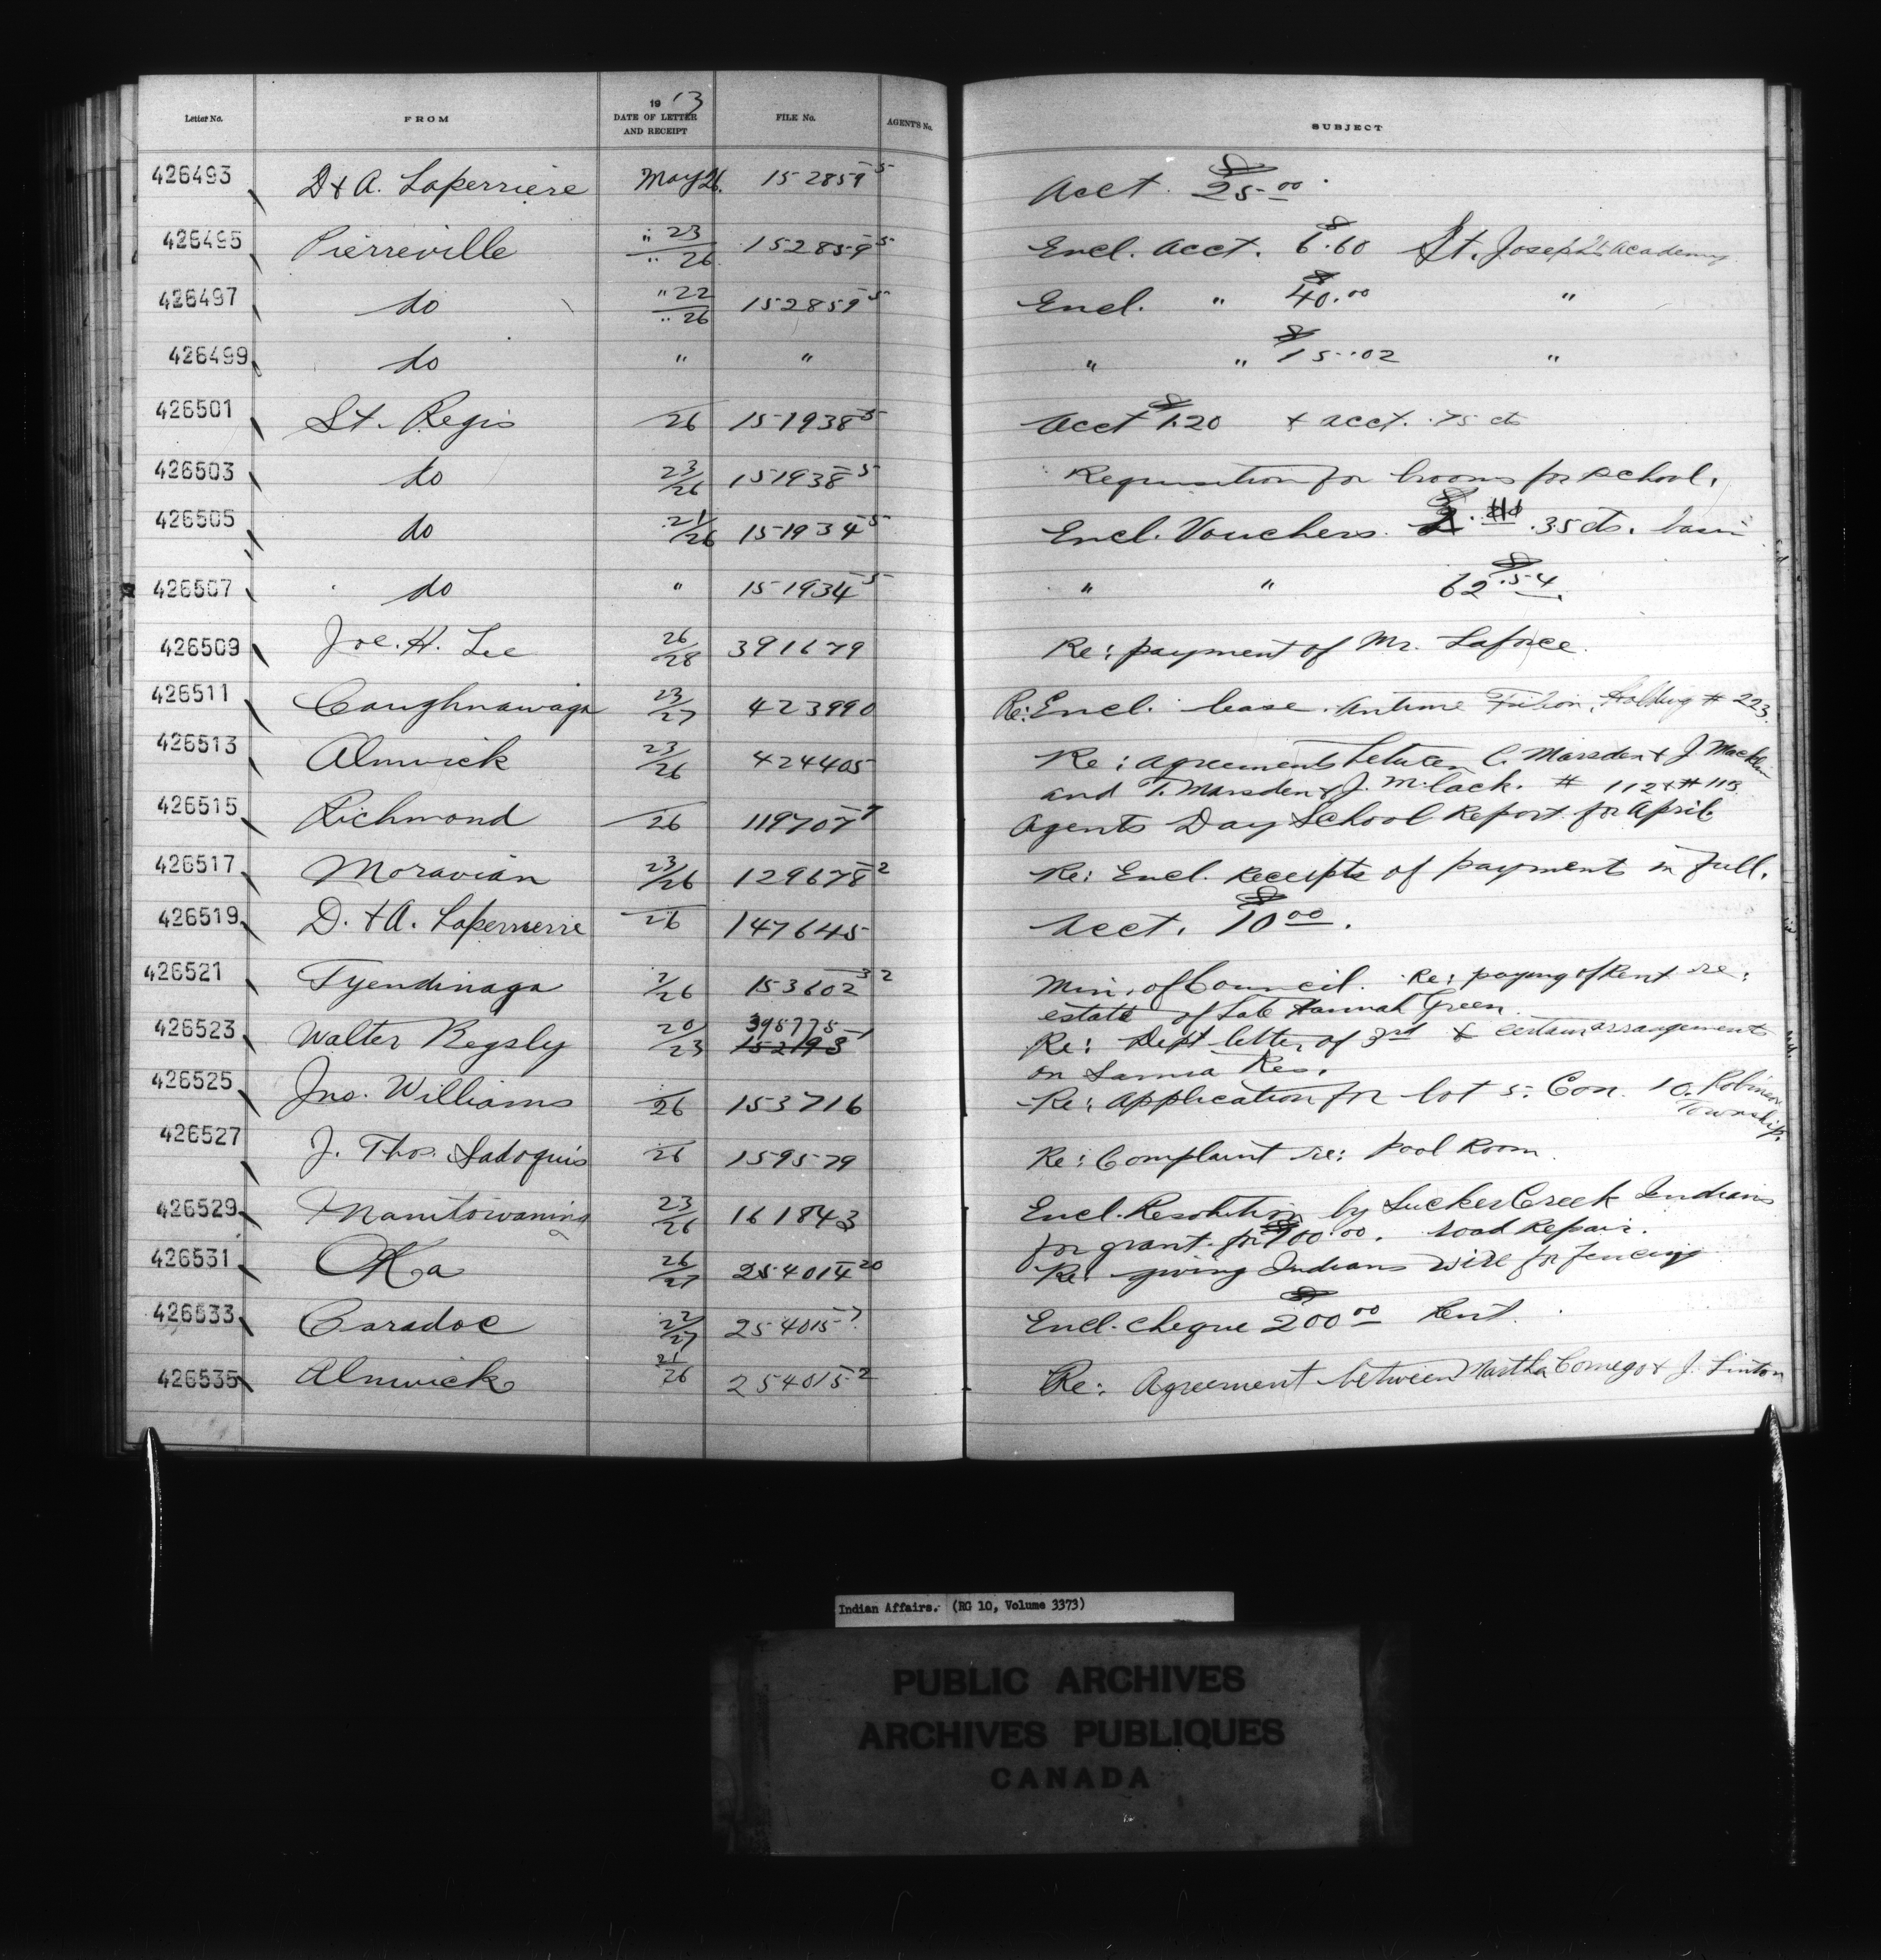 Letter No. FROM 1913 DATE OF LETTER AND RECEIPT FILE No. AGENT'S No. SUBJECT
426493 D & A. Laperriere May 26 152859-5 Acct. $25.00
426495 Pierreville " 23/" 26 152859-5 Encl. Acct. $6.60 St. Joseph's Academy
426497 do " 22/" 26 152859-5 Encl. " $40.00 "
426499 do " " " " $15.02 "
426501 St. Regis 26 151938-5 Acct $1.20 & acct. .75 cts
426503 do 23/26 151938-5 Requisition for brooms for school.
426505 do 21/26 151934-5 Encl. Vouchers. .35 cts.
426507 do " 151934-5 " " $62.54
426509 Joe. H. Lee 26/28 391679 Re: payment of Mr. Laforce.
426511 Caughnawaga 23/27 423990 Re: Encl. lease. # 223.
426513 Alnwick 23/26 424405 Re: agreements between C. Marsden & J. Macklin
and T. Marsden & J. # 112 & # 113
426515 Richmond 26 119707-7 Agents Day School Report for April.
426517 Moravian 23/26 129678-2 Re: Encl. Receipts of payment in full.
426519 D. & A. Laperrierre 26 147645 Acct. $10.00.
426521 Tyendinaga 2/26 153602-3 2 Min. of Council. Re: paying of Rent re:
estate of Late Hannah Green.
426523 Walter Regsly 20/23 395775-1 152193 Re: Dept letter of 3rd & certain arrangement
on Sarnia Res.
426525 Jno. Williams 26 153716 Re: Application for lot 5. Con. 10. Robinson
Township.
426527 J. Thos. Sadoquis 26 159579 Re: Complaint re: Pool Room.
426529 Manitowaning 23/26 161843 Encl. Resolution by Sucker Creek Indians
for grant for $100.00. road Repair.
426531 Oka 26/27 254014-20 Re: giving Indians wire for fencing
426533 Caradoc 22/27 254015-7 Encl. cheque $200.00 Rent.
426535 Alnwick 21/26 254015-2 Re: Agreement between Martha Comego & J. Linton
Indian Affairs. (RG 10, Volume 3373)
PUBLIC ARCHIVES
ARCHIVES PUBLIQUES
CANADA